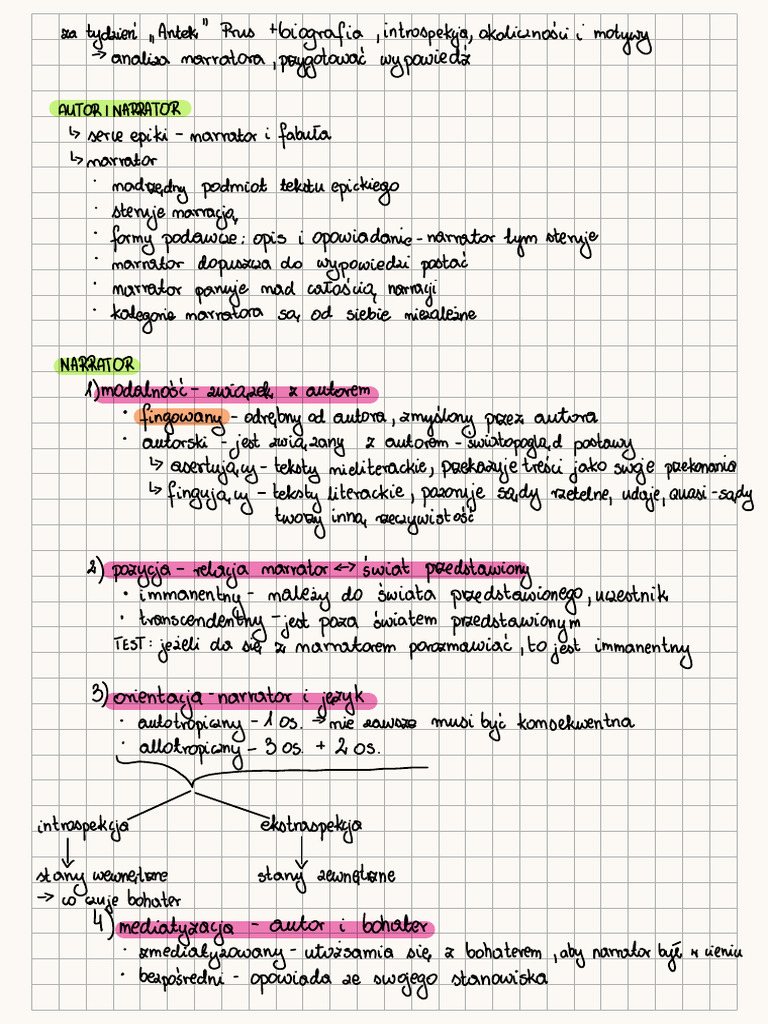 za tydzień "Antek" Prus + biografia, introspekcja, okoliczności i motywy
→ analiza narratora, przygotować wypowiedź
AUTOR I NARRATOR
↳ serce epiki - narrator i fabuła
↳ narrator
· nadrzędny podmiot tekstu epickiego
· steruje narracją
· formy podawcze: opis i opowiadanie - narrator tym steruje
· narrator dopuszcza do wypowiedzi postać
· narrator panuje nad całością narracji
· kategorie narratora są od siebie niezależne
NARRATOR
1) modalność - związek z autorem
· fingowany - odrębny od autora, zmyślony przez autora
· autorski - jest związany z autorem - światopogląd, postawy
↳ asertujący - teksty nieliterackie, przekazuje treści jako swoje przekonania
↳ fingujący - teksty literackie, pozoruje sądy rzetelne, udaje, quasi-sądy
tworzy inną rzeczywistość
2) pozycja - relacja narrator ↔ świat przedstawiony
· immanentny - należy do świata przedstawionego, uczestnik
· transcendentny - jest poza światem przedstawionym
TEST: jeżeli da się z narratorem porozmawiać, to jest immanentny
3) orientacja - narrator i język
· autotropiczny - 1 os. → nie zawsze musi być konsekwentna
· allotropiczny - 3 os. + 2 os.
introspekcja ekstraspekcja
↓ ↓
stany wewnętrzne stany zewnętrzne
→ co czuje bohater
4) mediatyzacja - autor i bohater
· zmediatyzowany - utożsamia się z bohaterem, aby narrator był w cieniu
· bezpośredni - opowiada ze swojego stanowiska